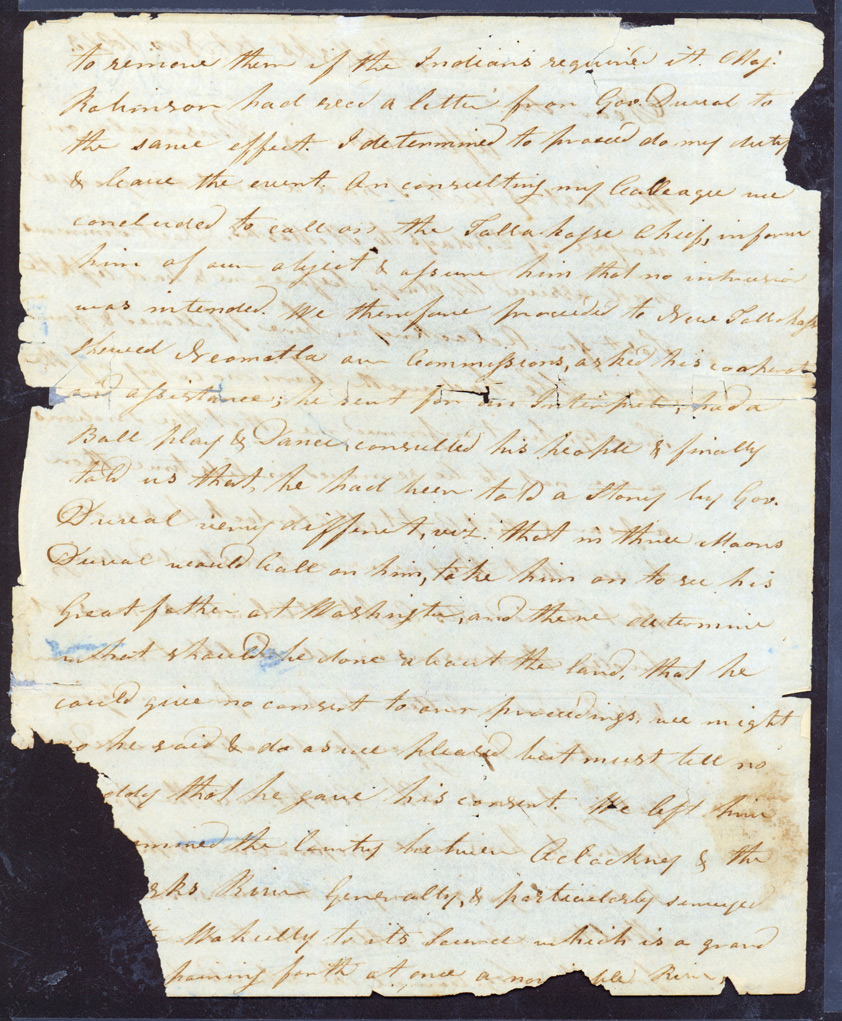 to remove them if the Indians required it. Maj.
Robinson had recd a letter from Gov. Duval to
the same effect I determined to proceed do my duty
& leave the event. On consulting my Colleague we
concluded to call on the Tallahasse Chief, inform
him of our object & assure him that no intrusion
was intended. We therefore proceeded to New Tallahasse
shewed Neomatla our Commissions, asked his cooperat
and assistance; he sent for an Interpreter, had a
Ball play & Dance, consulted his people & finally
told us that he had been told a Story by Gov.
Duval very different, viz. that in three Moons
Duval would Call on him, take him on to see his
Great father at Washington, and there determine
what should be done about the land, that he
could give no consent to our proceedings, we might
go he said & do as we pleased but must tell no
body that he gave his consent. We left him
amined the Country between Oclockney & the
rks River Generally, & particularly surveyed
Wakully to its Source which is a grand
forth at once a River